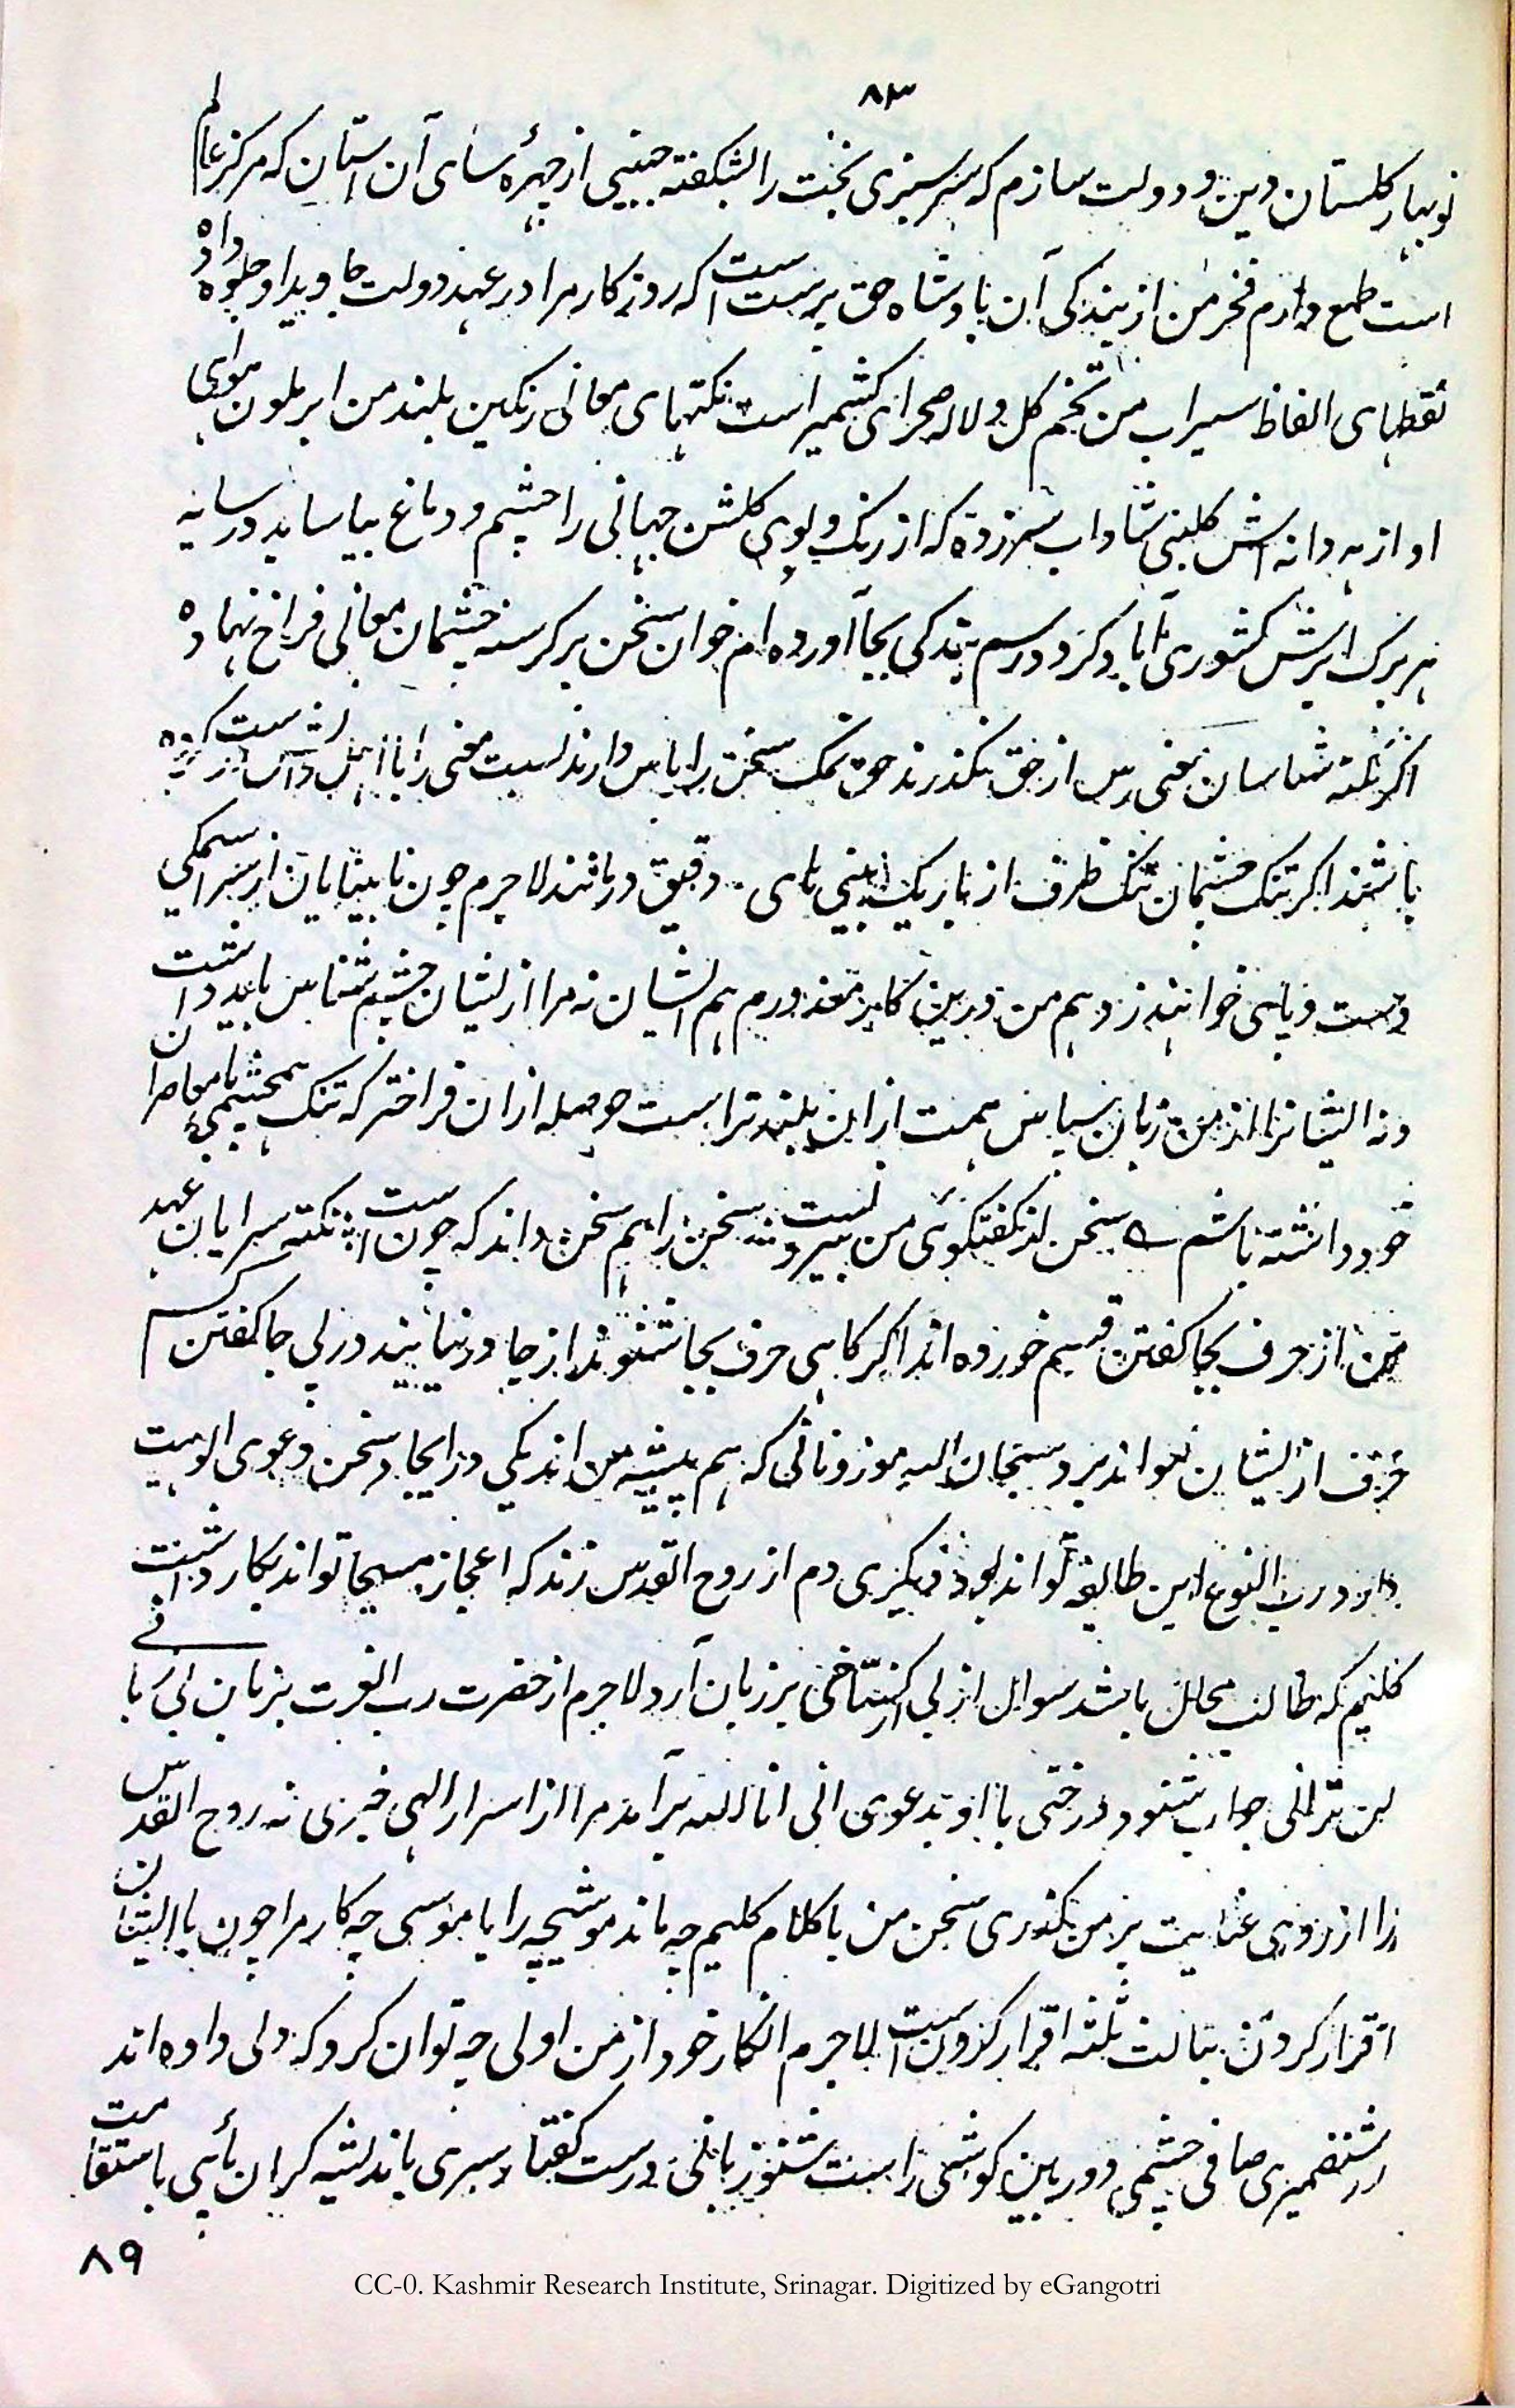 ۸۳
نوبهار کلستان دین و دولت سازم که سرسبزی بخت را شکفته جبینی از چهرهٔ سای آن استان که مرکز عالم
است طمع دارم فخر من از بندکی آن بادشاه حق پرست است که روزکار مرا در عهد دولت جاوید او جلوه داده
نقطهای الفاظ سیراب من تخم کل و لاله صحرای کشمیر است نکتهای معانی رنکین بلند من ابر ملون هوای
او از هر دانه اش کلبنی شاداب سرزده که از رنک و بوی کلشن جهانی را چشم و دماغ بیاساید در سایه
هر برک ابرش کشوری آباد کرد و رسم بندکی بجا آورده ام خوان سخن بر کرسنه چشمان معانی فراخ نهاده
اکر نکته شناسان معنی رس از حق نکذرند حق نمک سخن را پاس دارند نسبت معنی را با
باشند اکر تنک چشمان تنک ظرف از باریک بینی های دقیق در مانند لاجرم چون نابینایان از سراسیمکی
دست و پای خوانند زد هم من درین کار معذورم هم ایشان نه مرا از ایشان چشم شناس باید داشت
و نه ایشانرا از من زبان سپاس همت از این بلندتر است حوصله ازان فراختر که تنک همچشمی با معاصران
خود داشته باشم سخن از کفتکوی من بیرو نیست سخن را هم سخن داند که چون است نکته سرایان عهد
من از حرف بجا کفتن قسم خورده اند اکر کاهی حرف بجا شنوند از جا در نیایند در بی جا کفتن کسم
حرف از ایشان نتواند برد سبحان الله موزونانی که هم پیشه من اند یکی در ایجاد سخن دعوی الوهیت
دارد رب النوع این طایفه تواند بود دیکری دم از روح القدس زند که اعجاز مسیحا تواند بکار داشت
کلیم که طالب محال باشد سوال ازلی کستاخی بر زبان آرد لاجرم از حضرت رب العزت بزبان بی
لن ترانی جواب شنود درختی با او بدعوی انی انا الله برآمد مرا از اسرار الهی خبری نه روح القدس
را از روی عنایت بر من کذری سخن من با کلام کلیم چه ماند موشیچه را با موسی چه کار مرا چون با ایشان
اقرار کردن بثالث ثلثه اقرار کردن است لاجرم انکار خود از من اولی چه توان کرد که دلی داده اند
ضمیری صافی چشمی دوربین کوشی راست شنو زبانی درست کفتار سری باندیشه کران پائی باستقامت
۸۹
CC-0. Kashmir Research Institute, Srinagar. Digitized by eGangotri